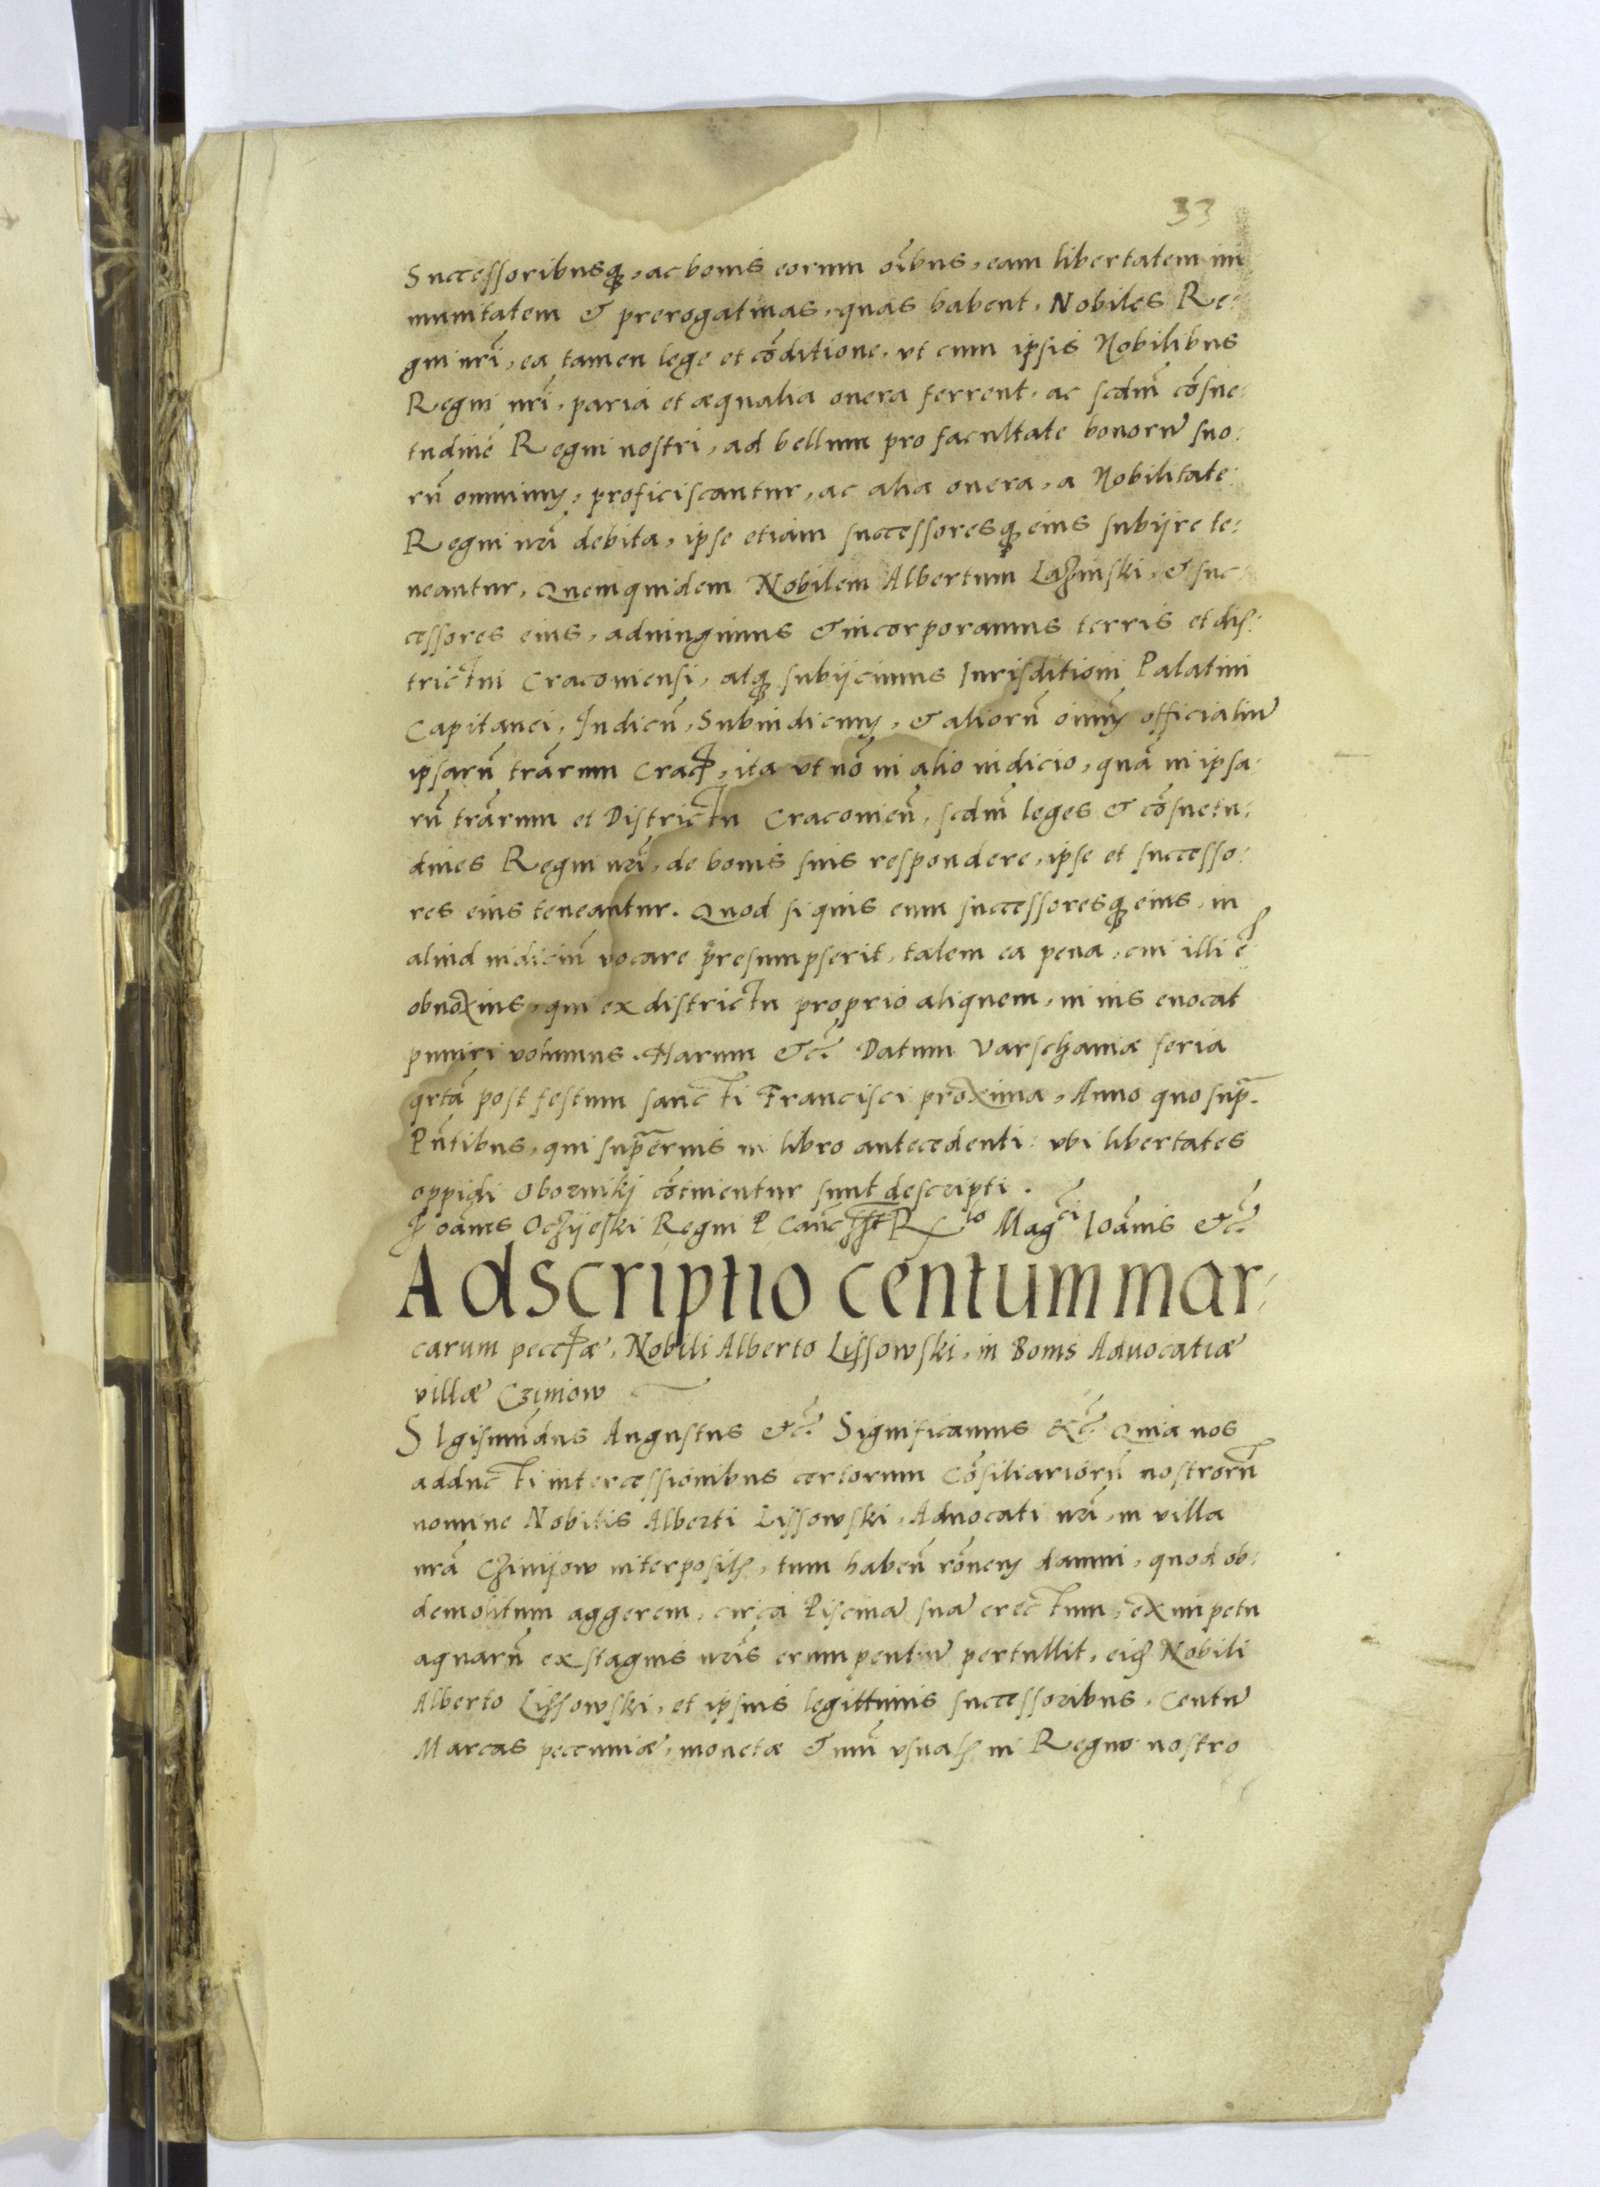 33
Successoribusq₃, ac bonis eorum oĩbus, eam libertatem im
munitatem & prerogatiuas, quas habent, Nobiles Re-
gni nrĩ, ea tamen lege et cõditione, vt cum ipsis Nobilibus
Regni nrĩ, paria et æqualia onera ferrent, ac scdm̃ cõsue-
tudinẽ Regni nostri, ad bellum pro facultate bonorũ suo-
rũ omnium, proficiscantur, ac alia onera, a Nobilitate
Regni nrĩ debita, ipse etiam successoresq₃ eius subijre te-
neantur, Quemquidem Nobilem Albertum Lazinski, & suc-
cessores eius, adiungimus & incorporamus terris et dis-
trictui Cracouiensi, atq₃ subijcimus Iurisditioni Palatini
Capitanei, Iudicũ, Subiudicum, & aliorũ oim̃ officialiũ
ipsarũ trãrum Crac, ita vt nõ in alio iudicio, quã in ipsa-
rũ trãrum et Districtu Cracouieñ, scdm̃ leges & cõsuetu-
dines Regni nrĩ, de bonis suis respondere, ipse et successo-
res eius teneantur. Quod si quis eum successoresq₃ eius, in
aliud iudiciũ vocare presumpserit, talem ea pena, cui illi ẽ
obnoxius, qui ex districtu proprio aliquem, in ius euocat
puniri volumus. Harum &c̃. Datum Varschauiæ feria
qrtã post festum sancti Francisci proxima, Anno quo sup̃.
Pñtibus, qui superius in libro antecedenti vbi libertates
oppidi Obornikj cõtinentur sunt descripti.
Joãnes Oczijeski Regni P Canc R Mag̃ci Ioãnis &c̃.
Adscriptio centum mar-
carum pecc̃æ, Nobili Alberto Lissowski, in Bonis Aduocatiæ
villæ Czimow
SIgismũdus Augustus &c̃. Significamus &c̃. Quia nos
adducti intercessionibus certorum Cõsiliariorũ nostrorũ
nomine Nobilis Alberti Lissowski, Aduocati nrĩ, in villa
nrã Czimijow interpositis, tum habeñ rõnem damni, quod ob
demolitum aggerem, circa Piscinã suã erectum, ex impetu
aquarũ ex stagnis nrĩs erumpentiũ pertullit, eid Nobili
Alberto Lissowski, et ipsius legittimis successoribus, Centũ
Marcas peccuniæ, monetæ & nũi vsualis in Regno nostro